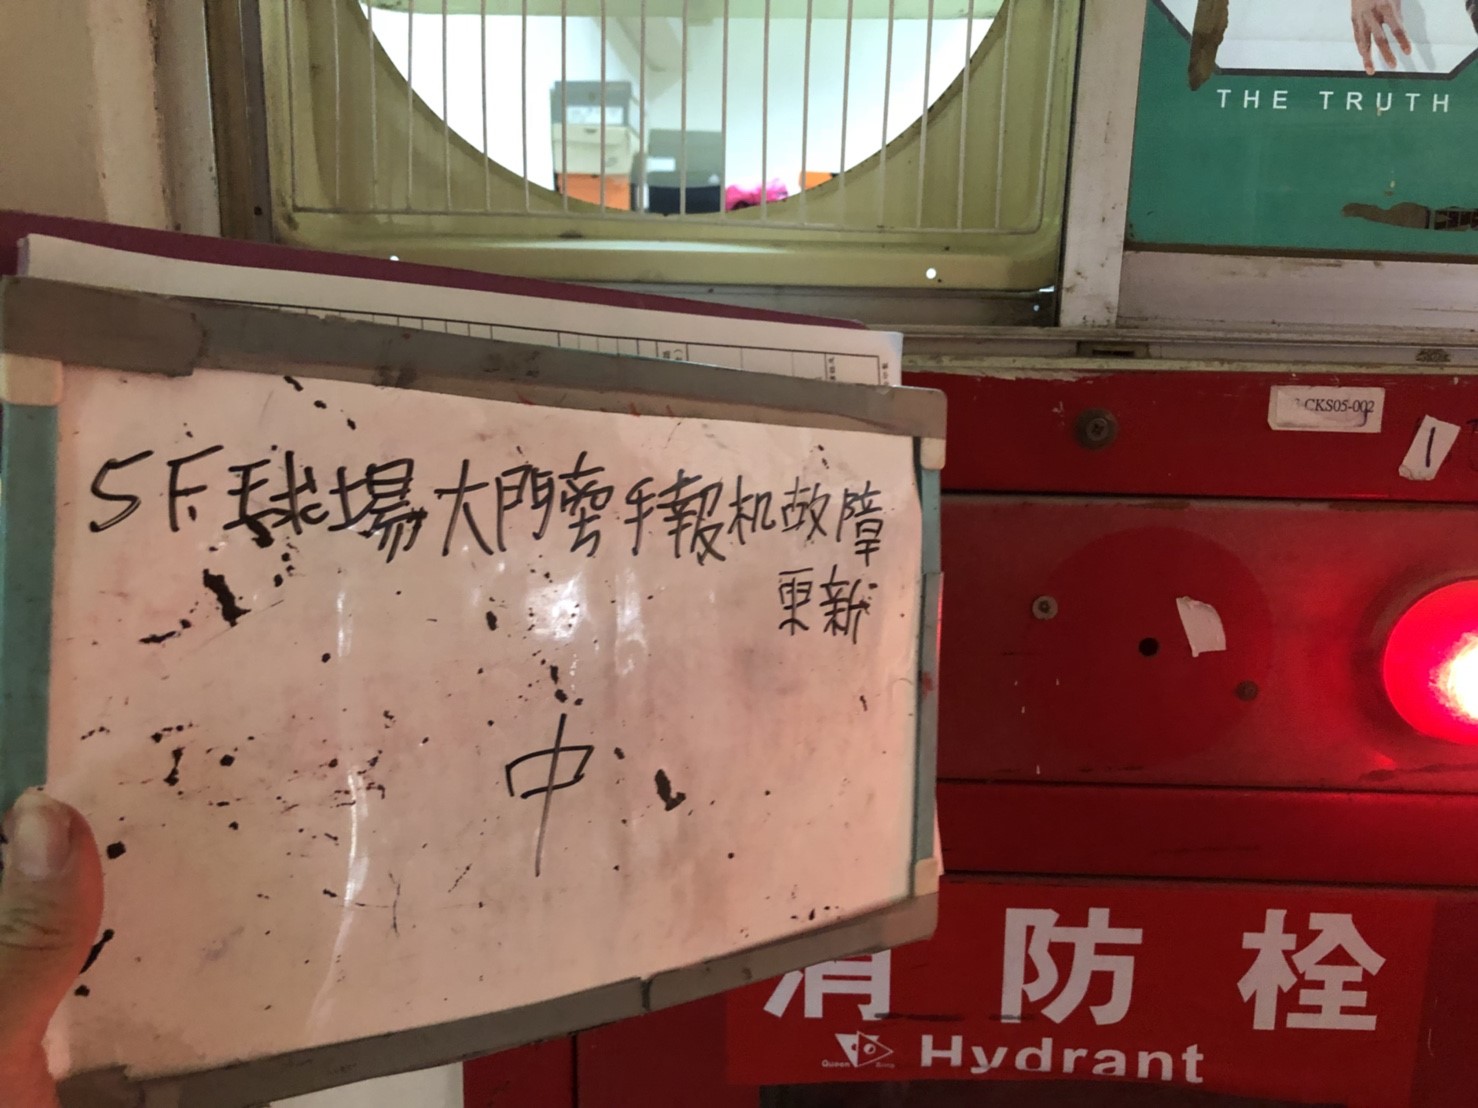 THE TRUTH
CKS05-002
1
5F球場大門旁手報机故障
更新
中
消防栓
Hydrant